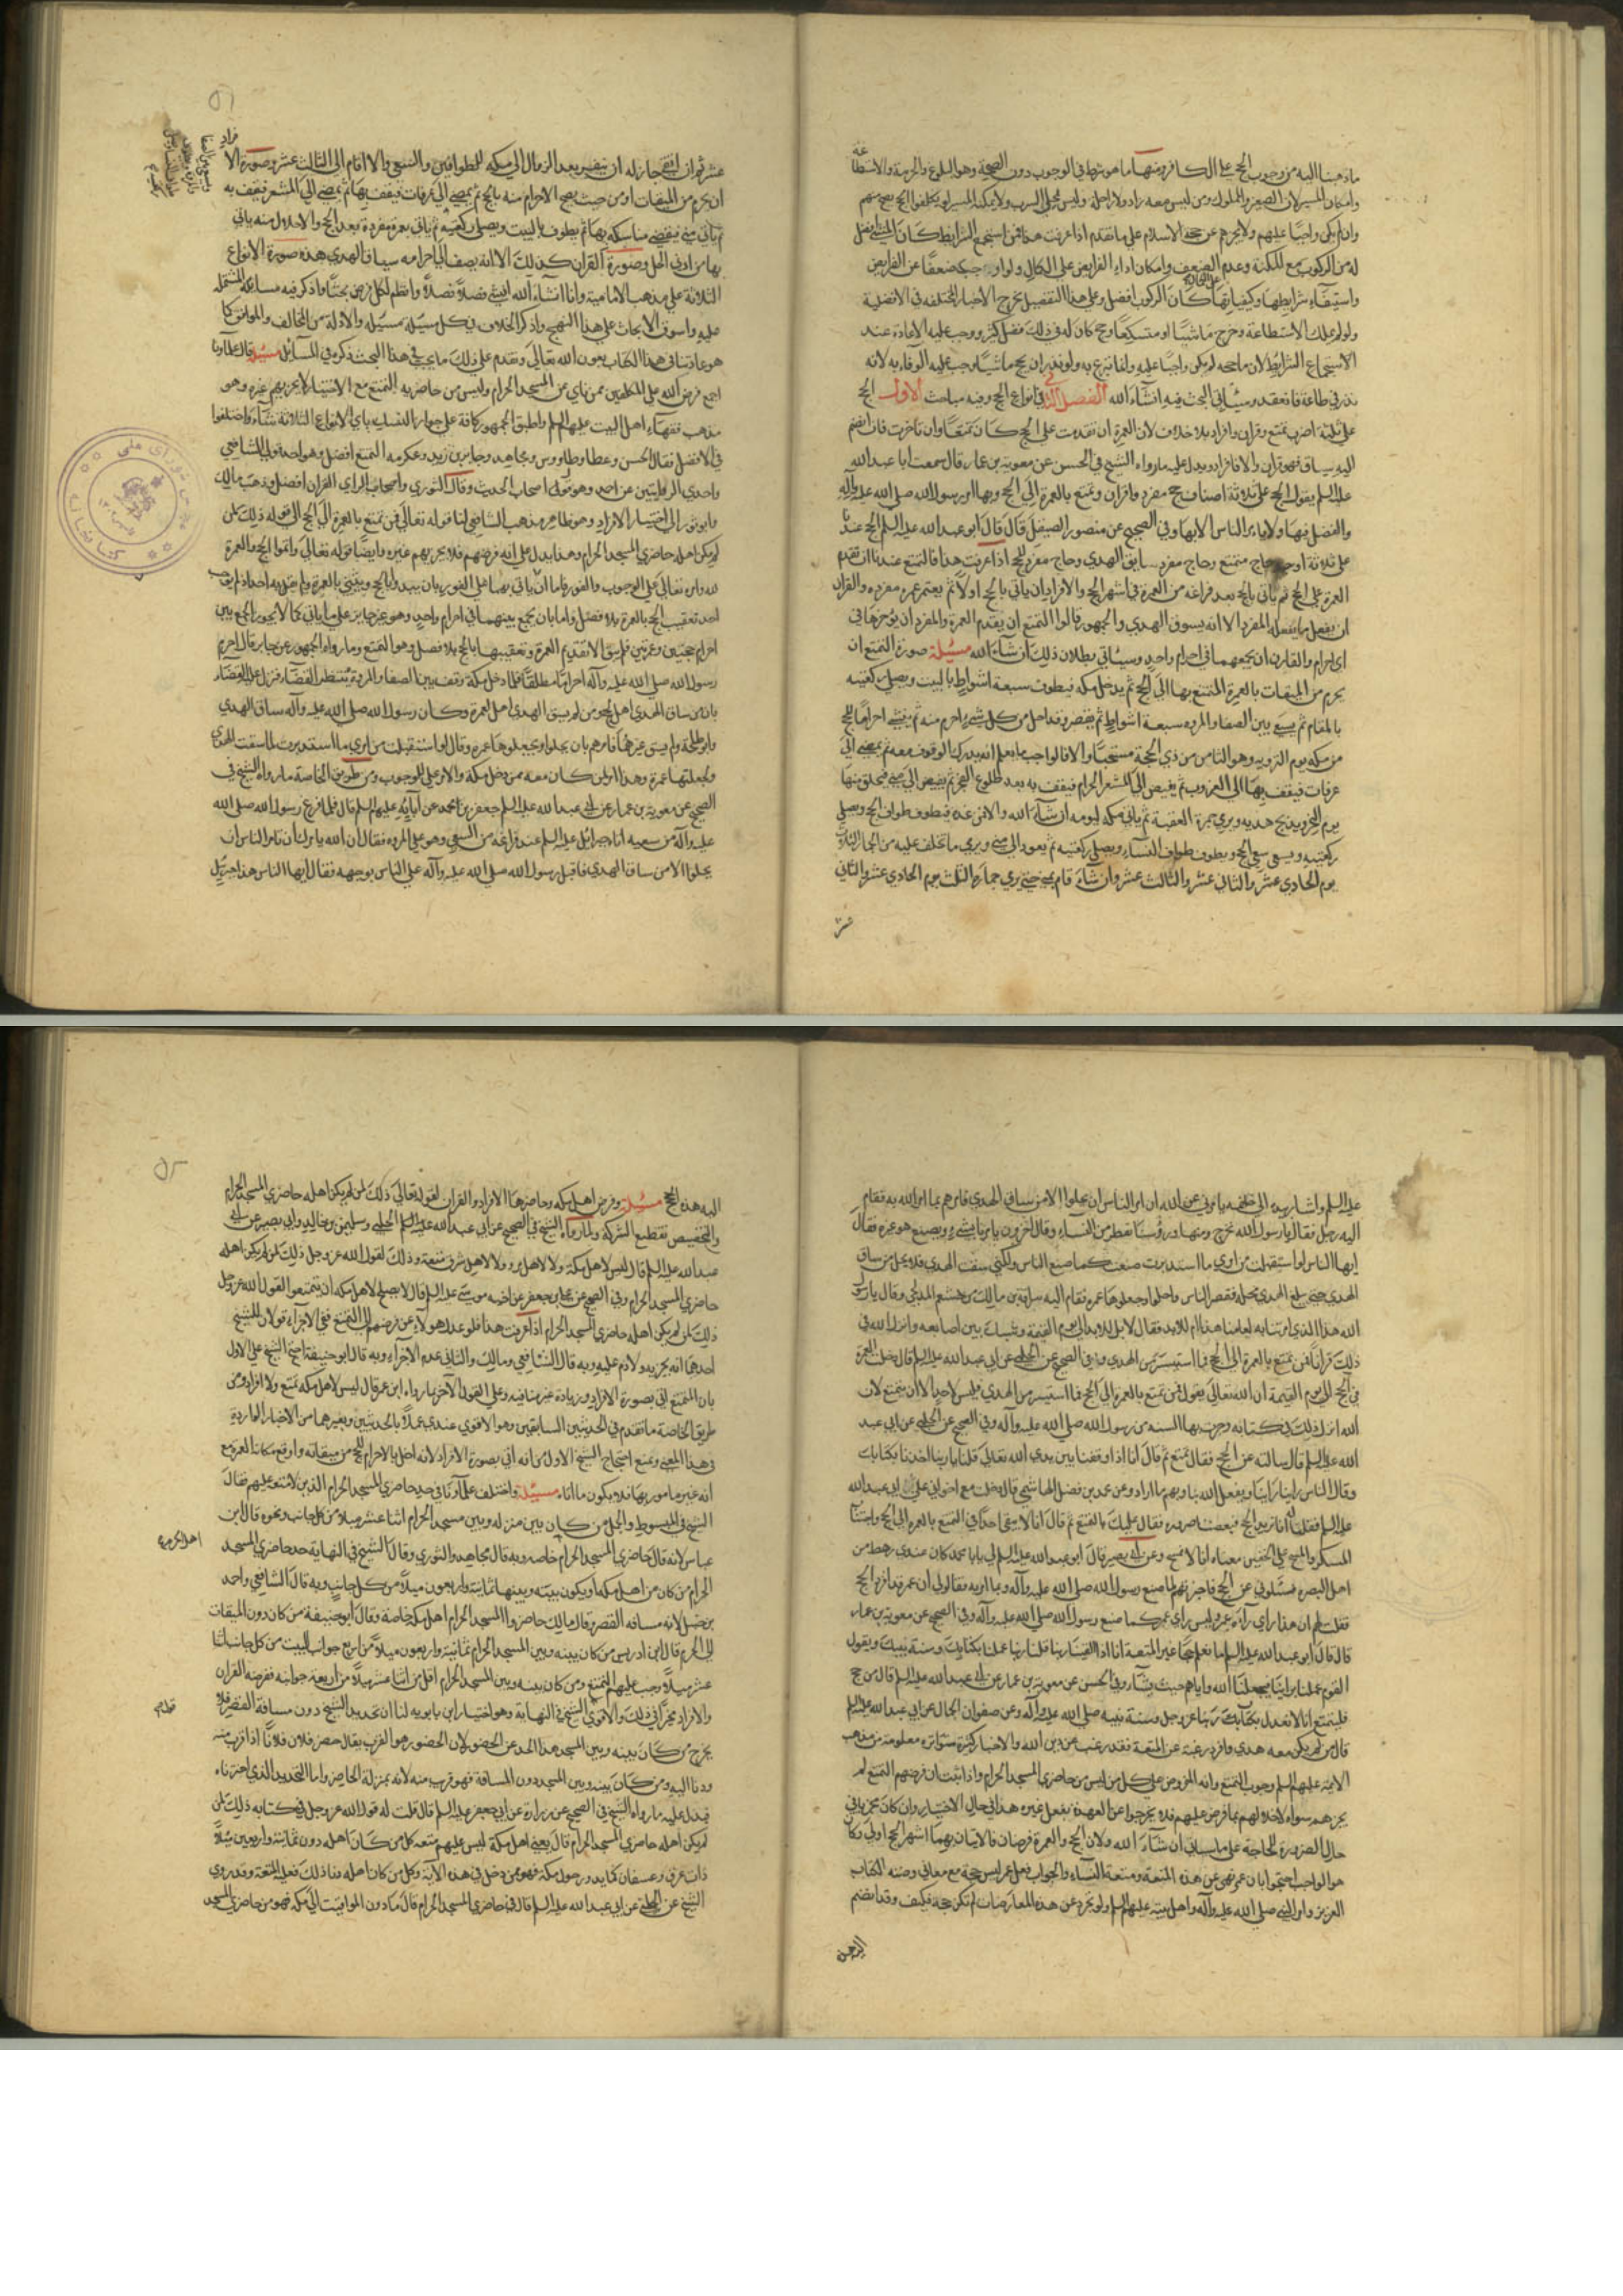 ما ذهبنا اليه من وجوب الحج على الكافر ومنها ما هو شرط في الوجوب دون الصحة وهو البلوغ والحرية والاستطاعة
وامكان المسير لان الصغير والمملوك ومن ليس معه زاد ولا راحلة وليس بمخلى السرب ولا يمكنه المسير لو تكلفوا الحج يصح منهم
وان لم يكن واجبا عليهم ولا يجزيهم عن حجة الاسلام على ما تقدم اذا عرفت هذا فمن استجمع الشرائط كان المشي افضل
له من الركوب مع المكنة وعدم الضعف وامكان اداء الفرايض على الكمال ولو اوجب ضعفا عن الفرايض
واستيفاء شرايطها وكيفياتها كان الركوب افضل وعلى هذا التفصيل يخرج الاخبار المختلفه في الافضلية
ولو لم يملك الاستطاعة وخرج ماشيا او متسكعا وحج كان له في ذلك فضل كثير ووجب عليه الاعادة عند
الاستجماع الشرايط لان ما حجه لم يكن واجبا عليه وانما تبرع به ولو نذر ان يحج ماشيا وجب عليه الوفاء به لانه
نذر في طاعة فانعقد وسياتي البحث فيه انشاء الله الفصل الثاني في انواع الحج وفيه مباحث الاول الحج
على ثلثة اضرب تمتع وقران وافراد بلا خلاف لان العمرة ان تقدمت على الحج كان تمتعا وان تاخرت فان انضم
اليه سياق فهو قران والا فافراد ويدل عليه ما رواه الشيخ في الحسن عن معوية بن عمار قال سمعت ابا عبد الله
عليه السلم يقول الحج على ثلاثة اصناف حج مفرد واقران وتمتع بالعمرة الى الحج وبها امر رسول الله صلى الله عليه وآله
والفضل فيها ولا يامر الناس الا بها وفي الصحيح عن منصور الصيقل قال قال ابو عبد الله عليه السلم الحج عندنا
على ثلاثة اوجه حاج متمتع وحاج مفرد سايق الهدي وحاج مفرد للحج اذا عرفت هذا فالتمتع عندنا ان تقدم
العمرة على الحج ثم ياتي بالحج بعد فراغه من العمرة في اشهر الحج والافراد ان ياتي بالحج اولا ثم يعتمر عمرة مفردة والقران
ان يفعل ما يفعله المفرد الا انه يسوق الهدي والجمهور قالوا التمتع ان يقدم العمرة والمفرد ان يؤخرها في
اي احرام والقارن ان يجمعهما في احرام واحد وسياتي بطلان ذلك ان شاء الله مسئلة صورة التمتع ان
يحرم من الميقات بالعمرة المتمتع بها الى الحج ثم يدخل مكة فيطوف سبعة اشواط بالبيت ويصلي ركعتيه
بالمقام ثم يسعى بين الصفا والمروه سبعة اشواط ثم يقصر وقد احل من كل شيء احرم منه ثم ينشي احراما للحج
من مكة يوم التروية وهو الثامن من ذي الحجة مستحبا والا فالواجب ما يعلم انه يدرك الوقوف معه ثم يمضي الى
عرفات فيقف بها الى الغروب ثم يفيض الى المشعر الحرام فيقف به بعد طلوع الفجر ثم يفيض الى منى فيحلق منها
يوم النحر ويذبح هديه ويرمي جمرة العقبة ثم ياتي مكة ليومه ان شاء الله والا فمن غده فيطوف طواف الحج ويصلي
ركعتيه ويسعى سعي الحج ويطوف طواف النساء ويصلي ركعتيه ثم يعود الى منى ويرمي ما تخلف عليه من الجمار الثلاث
يوم الحادي عشر والثاني عشر والثالث عشر وان شاء قام بمنى حتى يرمي جماره الثلث يوم الحادي عشر والثاني
عشر ثم ان اتقى جاز له ان ينفر بعد الزوال الى مكة للطوافين والسعي والا اقام الى الثالث عشر وصورة الافراد
ان يحرم من الميقات او من حيث يصح الاحرام منه بالحج ثم يمضي الى عرفات فيقف بها ثم يمضي الى المشعر فيقف به
ثم ياتي منى فيقضي مناسكه بها ثم يطوف بالبيت ويصلي ركعتيه ثم ياتي بعمرة مفردة بعد الحج والاحلال منه ياتي
بها من ادنى الحل وصورة القران كذلك الا انه يضيف الى احرامه سياق الهدي هذه صورة الانواع
الثلاثة على مذهب الامامية وانا انشاء الله
عليه واسوق الابحاث على هذا النهج واذكر الخلاف في كل مسئلة مسئلة والادلة من المخالف والموافق كما
هو عادتنا في هذا الكتاب بعون الله تعالى ونقدم على ذلك ما يجب في هذا البحث ذكره في المسائل مسئلة قال علماؤنا
اجمع فرض الله على المكلفين ممن ناى عن المسجد الحرام وليس من حاضريه التمتع مع الاختيار لا يجزيهم غيره وهو
مذهب فقهاء اهل البيت عليهم السلم واطبق الجمهور كافة على جواز النسك باي الانواع الثلاثة شاء واختلفوا
في الافضل فقال الحسن وعطا وطاووس ومجاهد وجابر بن زيد وعكرمه التمتع افضل وهو احد قولي الشافعي
واحدى الروايتين عن احمد وهو قول اصحاب الحديث وقال الثوري واصحاب الراي القران افضل وذهب مالك
وابو ثور الى اختيار الافراد وهو ظاهر مذهب الشافعي لنا قوله تعالى فمن تمتع بالعمرة الى الحج الى قوله ذلك لمن
لم يكن اهله حاضري المسجد الحرام وهذا يدل على انه فرضهم فلا يجزيهم غيره وايضا قوله تعالى واتموا الحج والعمرة
لله وامره تعالى على الوجوب والفور فاما ان ياتي بهما على الفور بان يبدأ بالحج ويثني بالعمرة ولم يقل به احد اذ لم يوجب
احد تعقيب الحج بالعمرة بلا فصل واما بان يجمع بينهما في احرام واحد وهو غير جايز على ما ياتي كما لا يجوز الجمع بين
احرام حجتين وعمرتين فلم يبق الا تقديم العمرة وتعقيبها بالحج بلا فصل وهو التمتع وما رواه الجمهور عن جابر قال احرم
رسول الله صلى الله عليه وآله احراما مطلقا فلما دخل مكة وقف بين الصفا والمروة ينتظر القضاء فنزل عليه القضاء
بان من ساق الهدي اهل بحج ومن لم يسق الهدي اهل بعمرة وكان رسول الله صلى الله عليه وآله ساق الهدي
وابو طلحة ولم يسق غيرهما فامرهم بان يحلوا ويجعلوها عمرة وقال لو استقبلت من امري ما استدبرت لما سقت الهدي
ولجعلتها عمرة وهذا امر لمن كان معه ممن دخل مكة والامر على الوجوب ومن طريق الخاصة ما رواه الشيخ في
الصحيح عن معوية بن عمار عن ابي عبد الله عليه السلم جعفر بن محمد عن آبائه عليهم السلم قال لما فرغ رسول الله صلى الله
عليه وآله من سعيه اتاه جبرائيل عليه السلم عند فراغه من السعي وهو على المروه فقال ان الله يامرك ان تامر الناس ان
يحلوا الا من ساق الهدي فاقبل رسول الله صلى الله عليه وآله على الناس بوجهه فقال ايها الناس هذا جبرئيل
عليه السلم واشار بيده الى خلفه يامرني عن الله ان امر الناس ان يحلوا الا من ساق الهدي فامرهم بما امر الله به فقام
اليه رجل فقال يا رسول الله نخرج ومنها ورؤسنا تقطر من النساء وقال اخرون يامرنا بشيء ويصنع هو غيره فقال
ايها الناس لو استقبلت من امري ما استدبرت صنعت كما صنع الناس ولكني سقت الهدي فلا يحل من ساق
الهدي حتى يبلغ الهدي محله فقصر الناس واحلوا وجعلوها عمرة فقام اليه سراقة بن مالك بن جشعم المدلجي وقال يا رسول
الله هذا الذي امرتنا به لعامنا هذا ام للابد فقال لا بل للابد الى يوم القيمة وشبك بين اصابعه وانزل الله في
ذلك قرانا فمن تمتع بالعمرة الى الحج فما استيسر من الهدي وفي الصحيح عن الحلبي عن ابي عبد الله عليه السلم قال دخلت العمرة
في الحج الى يوم القيمة ان الله تعالى يقول فمن تمتع بالعمرة الى الحج فما استيسر من الهدي فليس لاحد الا ان يتمتع لان
الله انزل ذلك في كتابه وجرت بها السنة من رسول الله صلى الله عليه وآله وفي الصحيح عن الحلبي عن ابي عبد
الله عليه السلم قال سالته عن الحج فقال تمتع ثم قال انا اذا وقفنا بين يدي الله تعالى قلنا يا ربنا اخذنا بكتابك
وقال الناس راينا راينا ويفعل الله بنا وبهم ما اراد وعن محمد بن فضل الهاشمي قال دخلت مع اخواني على ابي عبد الله
عليه السلم فقلنا له انا نريد الحج فبعضنا صرورة فقال عليك بالتمتع ثم قال انا لا نتقي احدا في التمتع بالعمرة الى الحج واجتناب
المسكر والمسح على الخفين معناه انا لا نمسح وعن ابي بصير قال قال ابو عبد الله عليه السلم لي يا با محمد كان عندي رهط من
اهل البصره فسئلوني عن الحج فاخبرتهم بما صنع رسول الله صلى الله عليه وآله وما امر به فقالوا لي ان عمر قد افرد الحج
فقلت لهم ان هذا راي رآه عمر وليس راي عمر كما صنع رسول الله صلى الله عليه وآله وفي الصحيح عن معوية بن عمار
قال قال ابو عبد الله عليه السلم ما نعلم حجا غير المتعة انا اذا لقينا ربنا قلنا ربنا عملنا بكتابك وسنة نبيك ويقول
القوم عملنا براينا فيجعلنا الله واياهم حيث يشاء وفي الحسن عن معوية بن عمار عن ابي عبد الله عليه السلم قال من حج
فليتمتع انا لا نعدل بكتاب ربنا عز وجل وسنة نبيه صلى الله عليه وآله وعن صفوان الجمال عن ابي عبد الله عليه السلم
قال من لم يكن معه هدي وافرد رغبة عن المتعة فقد رغب عن دين الله والاخبار كثيرة متواترة معلومة من مذهب
الايمة عليهم السلم وجوب التمتع وانه المفروض على كل من ليس من حاضري المسجد الحرام واذا ثبت ان فرضهم التمتع لم
يجزهم سواه لاخلالهم بما فرض عليهم فلا يخرجوا عن العهدة بفعل غيره هذا في حال الاختيار وان كان مجزيا في
حال الضرورة للحاجة على ما سياتي ان شاء الله ولان الحج والعمرة فرضان فالاتيان بهما اشهر الحج اولى وكان
هو الواجب احتجوا بان عمر نهى عن هذه المتعة ومتعة النساء والجواب فعل عمر ليس حجة مع معارضته الكتاب
العزيز وامر النبي صلى الله عليه وآله واهل بيته عليهم السلم ولو تجرد عن هذه المعارضات لم تكن حجة فكيف وقد انضم
اليه هذه الحجج مسئلة وفرض اهل مكة وحاضرها الافراد والقران لقوله تعالى ذلك لمن لم يكن اهله حاضري المسجد الحرام
والتخصيص تقطيع الشركة ولما رواه الشيخ في الصحيح عن ابي عبد الله عليه السلم الحلبي وسليمن بن خالد وابي بصير عن ابي
عبد الله عليه السلم قال ليس لاهل مكة ولا لاهل مر ولا لاهل سرف متعة وذلك لقول الله عز وجل ذلك لمن لم يكن اهله
حاضري المسجد الحرام وفي الصحيح عن علي بن جعفر عن اخيه موسى عليه السلم قال لا يصلح لاهل مكة ان يتمتعوا لقول الله عز وجل
ذلك لمن لم يكن اهله حاضري المسجد الحرام اذا عرفت هذا فلو عدل هؤلاء عن فرضهم الى التمتع ففي الاجزاء قولان للشيخ
احدهما انه يجزيه ولا دم عليه وبه قال الشافعي ومالك والثاني عدم الاجزاء وبه قال ابو حنيفة احتج الشيخ على الاول
بان المتمتع اتى بصورة الافراد وزيادة غير منافيه وعلى القول الآخر بما رواه ابن عمر قال ليس لاهل مكة تمتع ولا افراد ومن
طريق الخاصة ما تقدم في الحديثين السابقين وهو الاقوى عندي عملا بالحديثين وبغيرهما من الاخبار الواردة
في هذا المعنى ونمنع احتجاج الشيخ الاول من انه اتى بصورة الافراد لانه اخل بالاحرام للحج من ميقاته واوقع مكانه العمرة مع
انه غير مامور بها فلا يكون ما اتاه مسئلة واختلف علماؤنا في حد حاضري المسجد الحرام الذين لا متعة عليهم فقال
الشيخ في المبسوط والجمل من كان بين منزله وبين مسجد الحرام اثنا عشر ميلا من كل جانب ونحوه قال ابن
عباس لانه قال حاضري المسجد الحرام خاصة وبه قال مجاهد والثوري وقال الشيخ في النهاية حد حاضري المسجد
الحرام من كان من اهل مكة او يكون بينه وبينها ثمانية واربعون ميلا من كل جانب وبه قال الشافعي واحمد
بن حنبل لانه مسافة القصر وقال مالك حاضروا المسجد الحرام اهل مكة خاصة وقال ابو حنيفة من كان دون الميقات
الى الحرم قال ابن ادريس من كان بينه وبين المسجد الحرام ثمانية واربعون ميلا من اربع جوانب البيت من كل جانب اثنا
عشر ميلا وجب عليهم التمتع ومن كان بينه وبين المسجد الحرام اقل من اثنا عشر ميلا من اربعة جوانبه ففرضه القران
والافراد مخيرا في ذلك والاقوى الشيخ في النهاية وهو اختيار ابن بابويه لنا ان تحديد الشيخ دون مسافة القصر فلا
يخرج من كان بينه وبين المسجد هذا الحد عن الحضور لان الحضور هو القرب يقال حضر فلان فلانا اذا قرب منه
ودنا اليه ومن كان بينه وبين المسجد دون المسافة فهو قرب منه لانه بمنزلة الحاضر واما التحديد الذي اخترناه
فيدل عليه ما رواه الشيخ في الصحيح عن زرارة عن ابي جعفر عليه السلم قال قلت له قول الله عز وجل في كتابه ذلك لمن
لم يكن اهله حاضري المسجد الحرام قال يعني اهل مكة ليس عليهم متعة كل من كان اهله دون ثمانية واربعين ميلا
ذات عرق وعسفان كما يدور حول مكة فهو ممن دخل في هذه الآية وكل من كان اهله وراء ذلك فعليه المتعة وقد روى
الشيخ عن الحلبي عن ابي عبد الله عليه السلم قال في حاضري المسجد الحرام قال ما دون المواقيت الى مكة فهو من حاضري المسجد